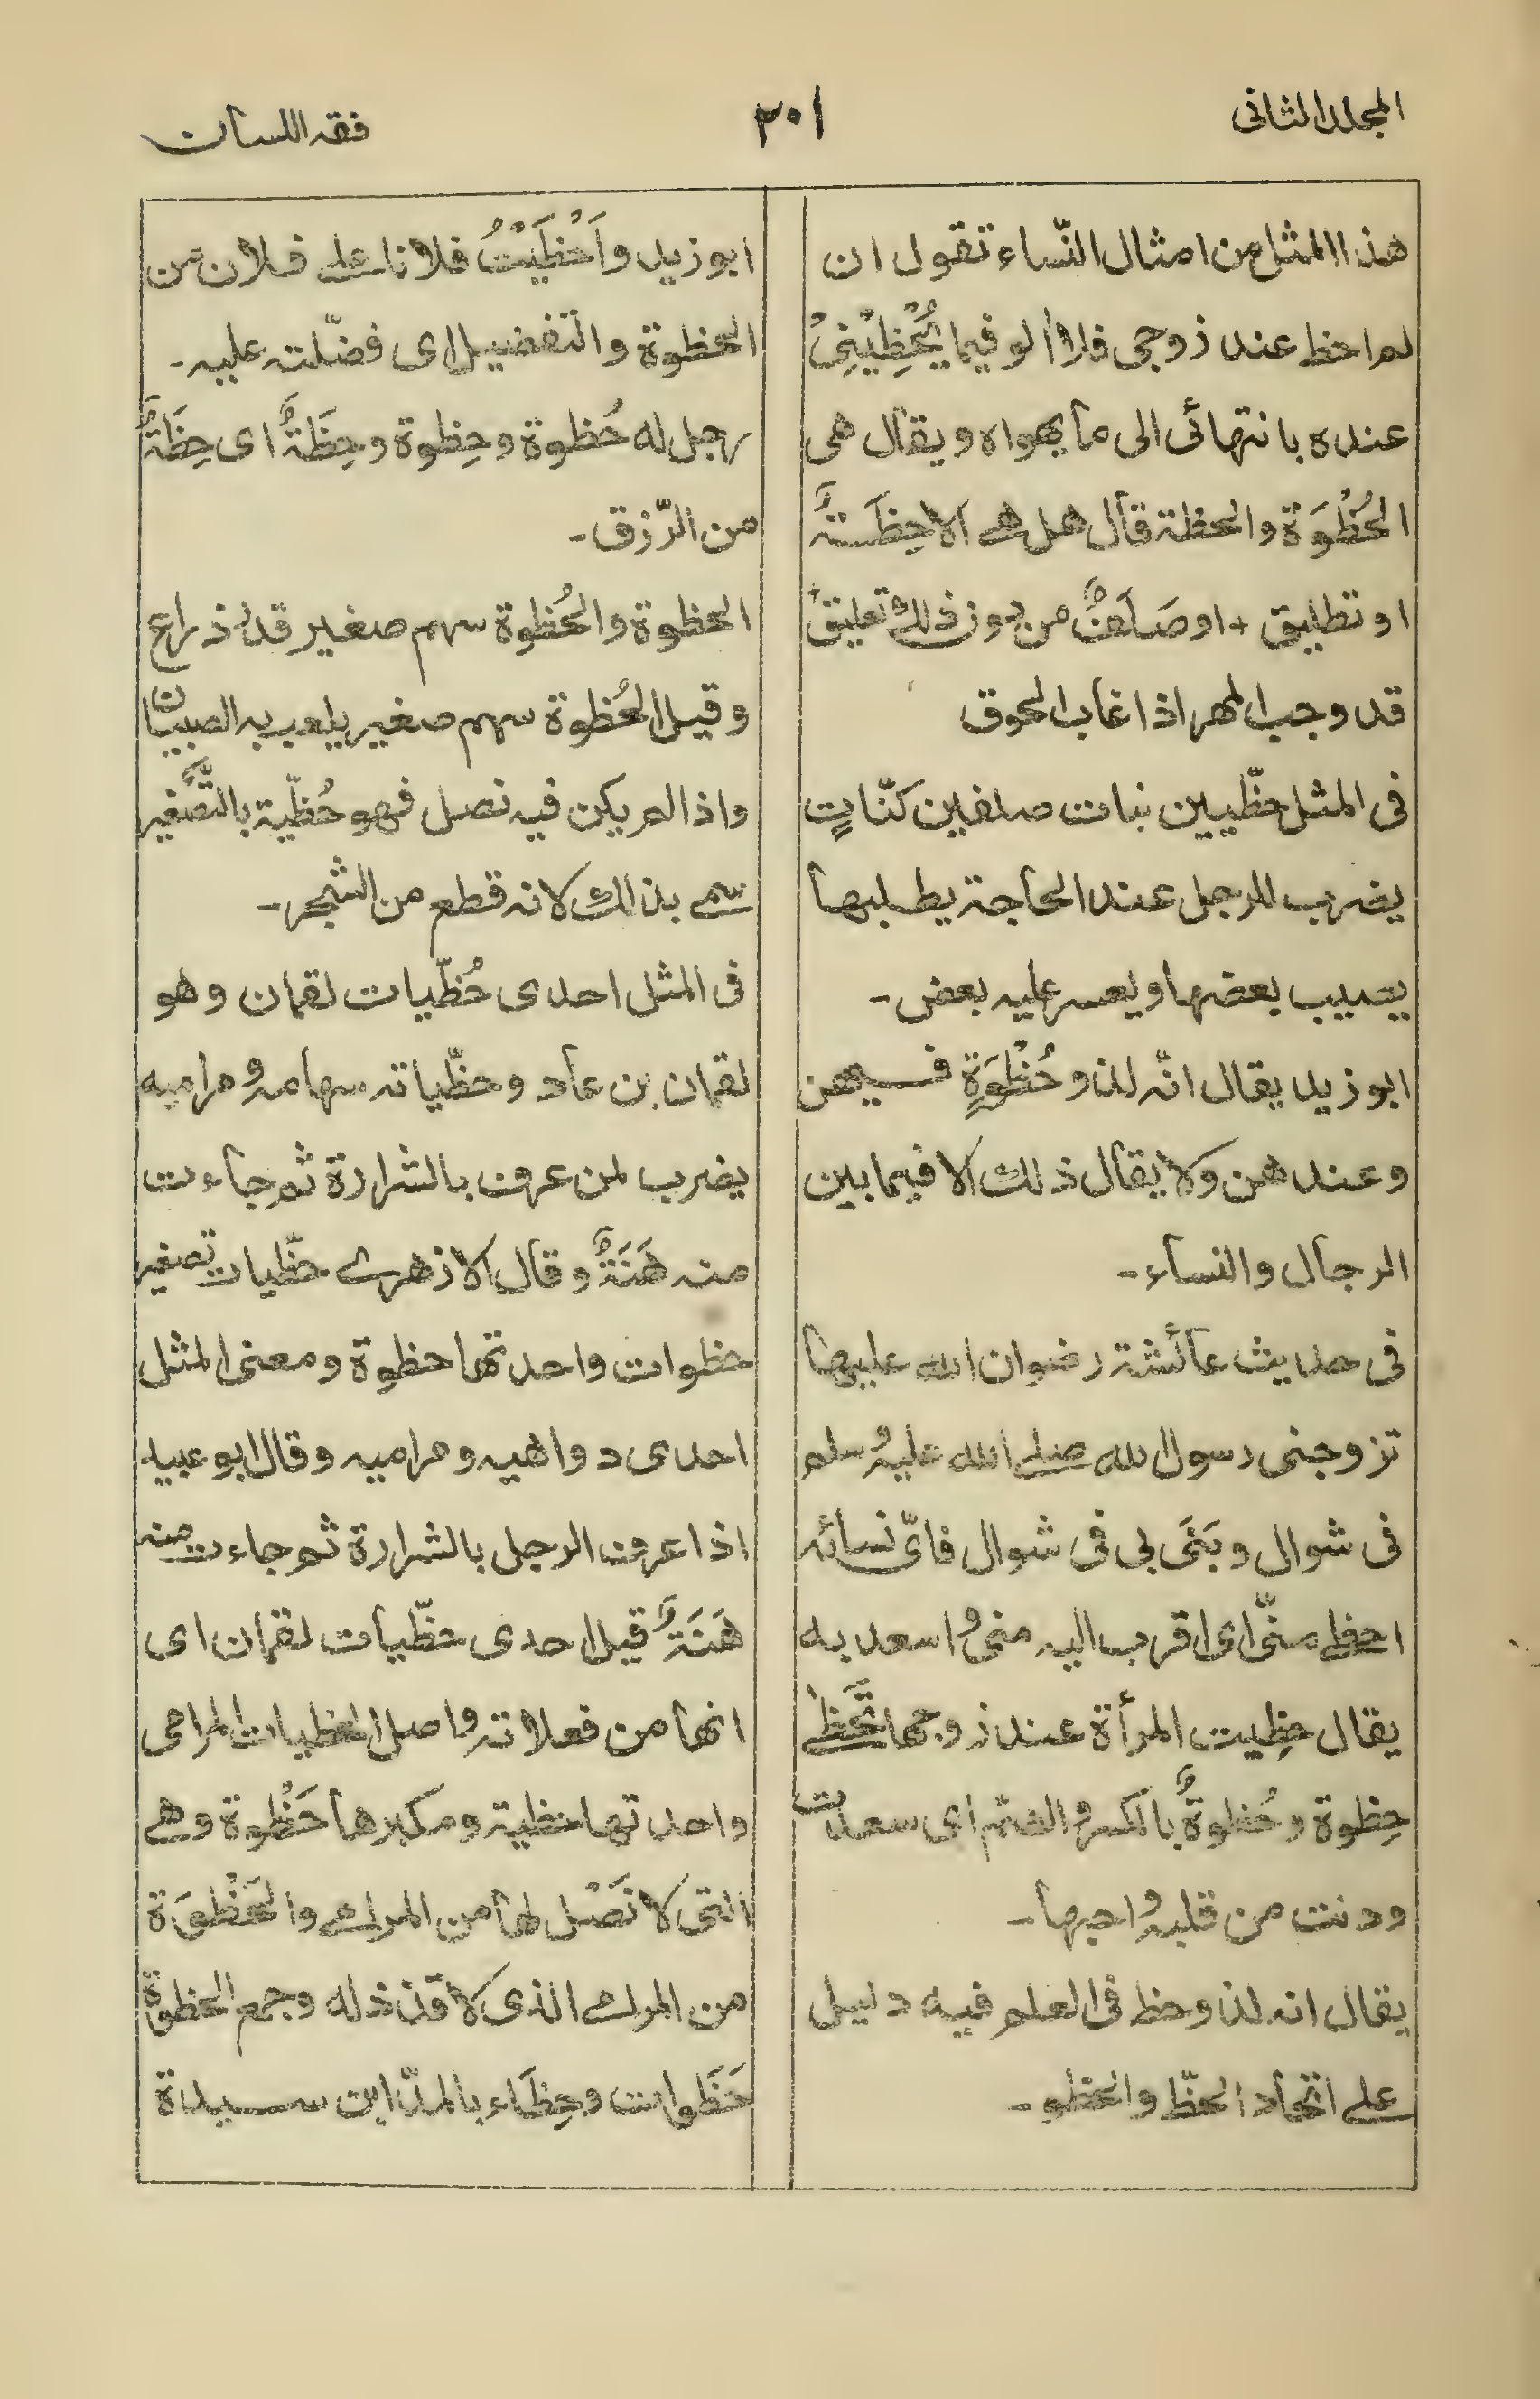 المجلد الثانی
٣٠١
فقه اللسان
هذا المثل من امثال النّساء تقول ان
لم احظ عند زوجی فلا اٰلو فیما یُحْظِیْنِیْ
عنده بانتهائی الی ما یهواه ویقال هی
الحُظْوَة والحظة قال هل هے الا حِظَةٌ
او تطلیق + او صَلَفٌ من بون ذلك تعلیق
قد وجب المهر اذا غاب الحوق
فی المثل حظّیین بنات صلفین کنّاتٍ
یضرب للرجل عند الحاجة یطلبها
یصیب بعضها ویعسر علیه بعض۔
ابو زید یقال انّه لذو حُظْوَةٍ فیهن
وعند هن ولا یقال ذلك الا فیما بین
الرجال والنساء۔
فی حدیث عائشة رضوان الله علیها
تزوجنی رسول الله صلے الله علیه وسلم
فی شوال وبَنَی بی فی شوال فایّ نسائه
احظے منّی ای اقرب الیه منی واسعد به
یقال حظِیت المرأة عند زوجها تَحْظےٰ
حِظوة وحُظوةٌ بالکسر والضمّ ای سعدت
ودنت من قلبه واحبها۔
یقال انه لذو حظ فی العلم فیه دلیل
علے اتحاد الحظّ والحظو۔
ابو زید واَحْظَیْتُ فلانا علے فلان من
الحظوة والتفضیل ای فضّلته علیه۔
رجل له حُظوة وحِظوة وحِظَةٌ ای حِظَةٌ
من الرّزق۔
الحظوة والحُظوة سهم صغیر قدر ذراع
وقیل الحُظوة سهم صغیر یلعب به الصبیان
واذا لم یکن فیه نصل فهو حُظّیة بالتَّصْغیر
سمے بذلك لانه قطع من الشجر۔
فی المثل احدی حُظّیات لقمان وهو
لقمان بن عاد وحظّیاته سهامه ومرامیه
یضرب لمن عرف بالشرارة ثم جاءت
منه هَنَةٌ وقال الازهرے حظّیات تصغیر
حظوات واحدتها حظوة ومعنی المثل
احدی دواهیه ومرامیه وقال ابو عبید
اذا عرف الرجل بالشرارة ثم جاءت منه
هَنَةٌ قیل احدی حظّیات لقمان ای
انها من فعلاته واصل الحظیات المرامی
واحدتها حظیة ومکبرها حَظْوة وهے
التی لا نَصْل لها من المرامے والحَظْوَة
من المرامے الذی لا قذذ له وجمع الحظوة
حَظَوات وحِظَاء بالمدّ ابن سیدة